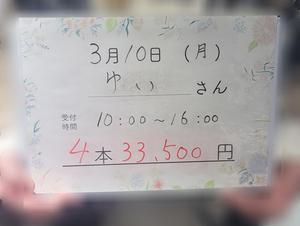 3月10日 (月)
ゆい さん
受付時間 10:00～16:00
4本 33,500円